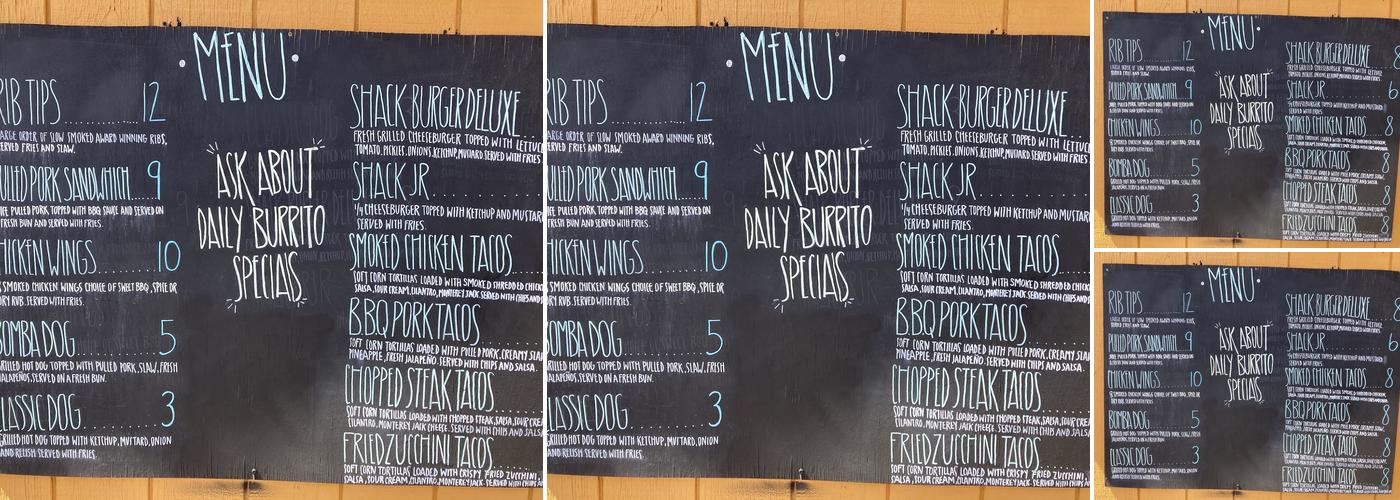 MENU
RIB TIPS 12
LARGE ORDER OF SLOW SMOKED AWARD WINNING RIBS,
SERVED FRIES AND SLAW.
PULLED PORK SANDWHICH 9
PULLED PORK TOPPED WITH BBQ SAUCE AND SERVED ON
FRESH BUN AND SERVED WITH FRIES.
CHICKEN WINGS 10
SMOKED CHICKEN WINGS CHOICE OF SWEET BBQ, SPIE OR
DRY RUB. SERVED WITH FRIES.
BOMBA DOG 5
GRILLED HOT DOG TOPPED WITH PULLED PORK, SLAW, FRESH
JALAPEÑOS. SERVED ON A FRESH BUN.
CLASSIC DOG 3
GRILLED HOT DOG TOPPED WITH KETCHUP, MUSTARD, ONION
AND RELISH SERVED WITH FRIES.
ASK ABOUT
DAILY BURRITO
SPECIALS
SHACK BURGER DELUXE 8
FRESH GRILLED CHEESEBURGER TOPPED WITH LETTUCE
TOMATO, PICKLES, ONIONS, KETCHUP, MUSTARD SERVED WITH FRIES
SHACK JR 6
1/4 CHEESEBURGER TOPPED WITH KETCHUP AND MUSTARD
SERVED WITH FRIES.
SMOKED CHICKEN TACOS 8
SOFT CORN TORTILLAS LOADED WITH SMOKED SHREDDED CHICKEN
SALSA, SOUR CREAM, CILANTRO, MONTEREY JACK. SERVED WITH CHIPS AND
BBQ PORK TACOS 8
SOFT CORN TORTILLAS LOADED WITH PULLED PORK, CREAMY SLAW,
PINEAPPLE, FRESH JALAPEÑO. SERVED WITH CHIPS AND SALSA.
CHOPPED STEAK TACOS 8
SOFT CORN TORTILLAS LOADED WITH CHOPPED STEAK, SALSA, SOUR CREAM,
CILANTRO, MONTEREY JACK CHEESE. SERVED WITH CHIPS AND SALSA
FRIED ZUCCHINI TACOS 8
SOFT CORN TORTILLAS LOADED WITH CRISPY FRIED ZUCCHINI,
SALSA, SOUR CREAM, CILANTRO, MONTEREY JACK. SERVED WITH CHIPS AND